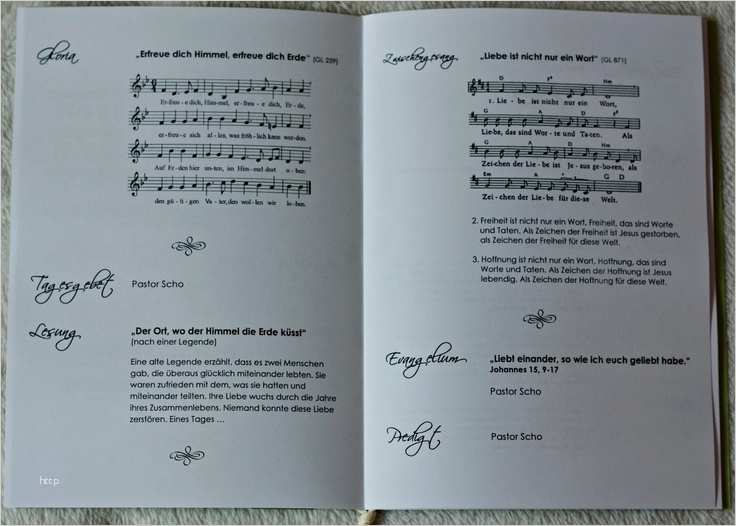 Gloria
„Erfreue dich Himmel, erfreue dich Erde“ [GL 259]
Erfreu - e dich, Him-mel, er-freu - e dich, Er-de,
er-freu-e sich al-les, was fröh-lich kann wer-den.
Auf Er-den hier un-ten, im Him-mel dort o-ben:
den gü-ti-gen Va-ter, den wol-len wir lo-ben.
Tagesgebet
Pastor Scho
Lesung
„Der Ort, wo der Himmel die Erde küsst“
(nach einer Legende)
Eine alte Legende erzählt, dass es zwei Menschen
gab, die überaus glücklich miteinander lebten. Sie
waren zufrieden mit dem, was sie hatten und
miteinander teilten. Ihre Liebe wuchs durch die Jahre
ihres Zusammenlebens. Niemand konnte diese Liebe
zerstören. Eines Tages ...
http
Zwischengesang
„Liebe ist nicht nur ein Wort“ [GL 871]
D Hm
1. Lie - be ist nicht nur ein Wort,
G A D Hm
Lie-be, das sind Wor - te und Ta-ten. Als
G A D Hm
Zei-chen der Lie-be ist Je - sus ge-bo-ren, als
Em A G D
Zei - chen der Lie-be für die-se Welt.
2. Freiheit ist nicht nur ein Wort, Freiheit, das sind Worte
und Taten. Als Zeichen der Freiheit ist Jesus gestorben,
als Zeichen der Freiheit für diese Welt.
3. Hoffnung ist nicht nur ein Wort, Hoffnung, das sind
Worte und Taten. Als Zeichen der Hoffnung ist Jesus
lebendig. Als Zeichen der Hoffnung für diese Welt.
Evangelium
„Liebt einander, so wie ich euch geliebt habe.“
Johannes 15, 9-17
Pastor Scho
Predigt
Pastor Scho